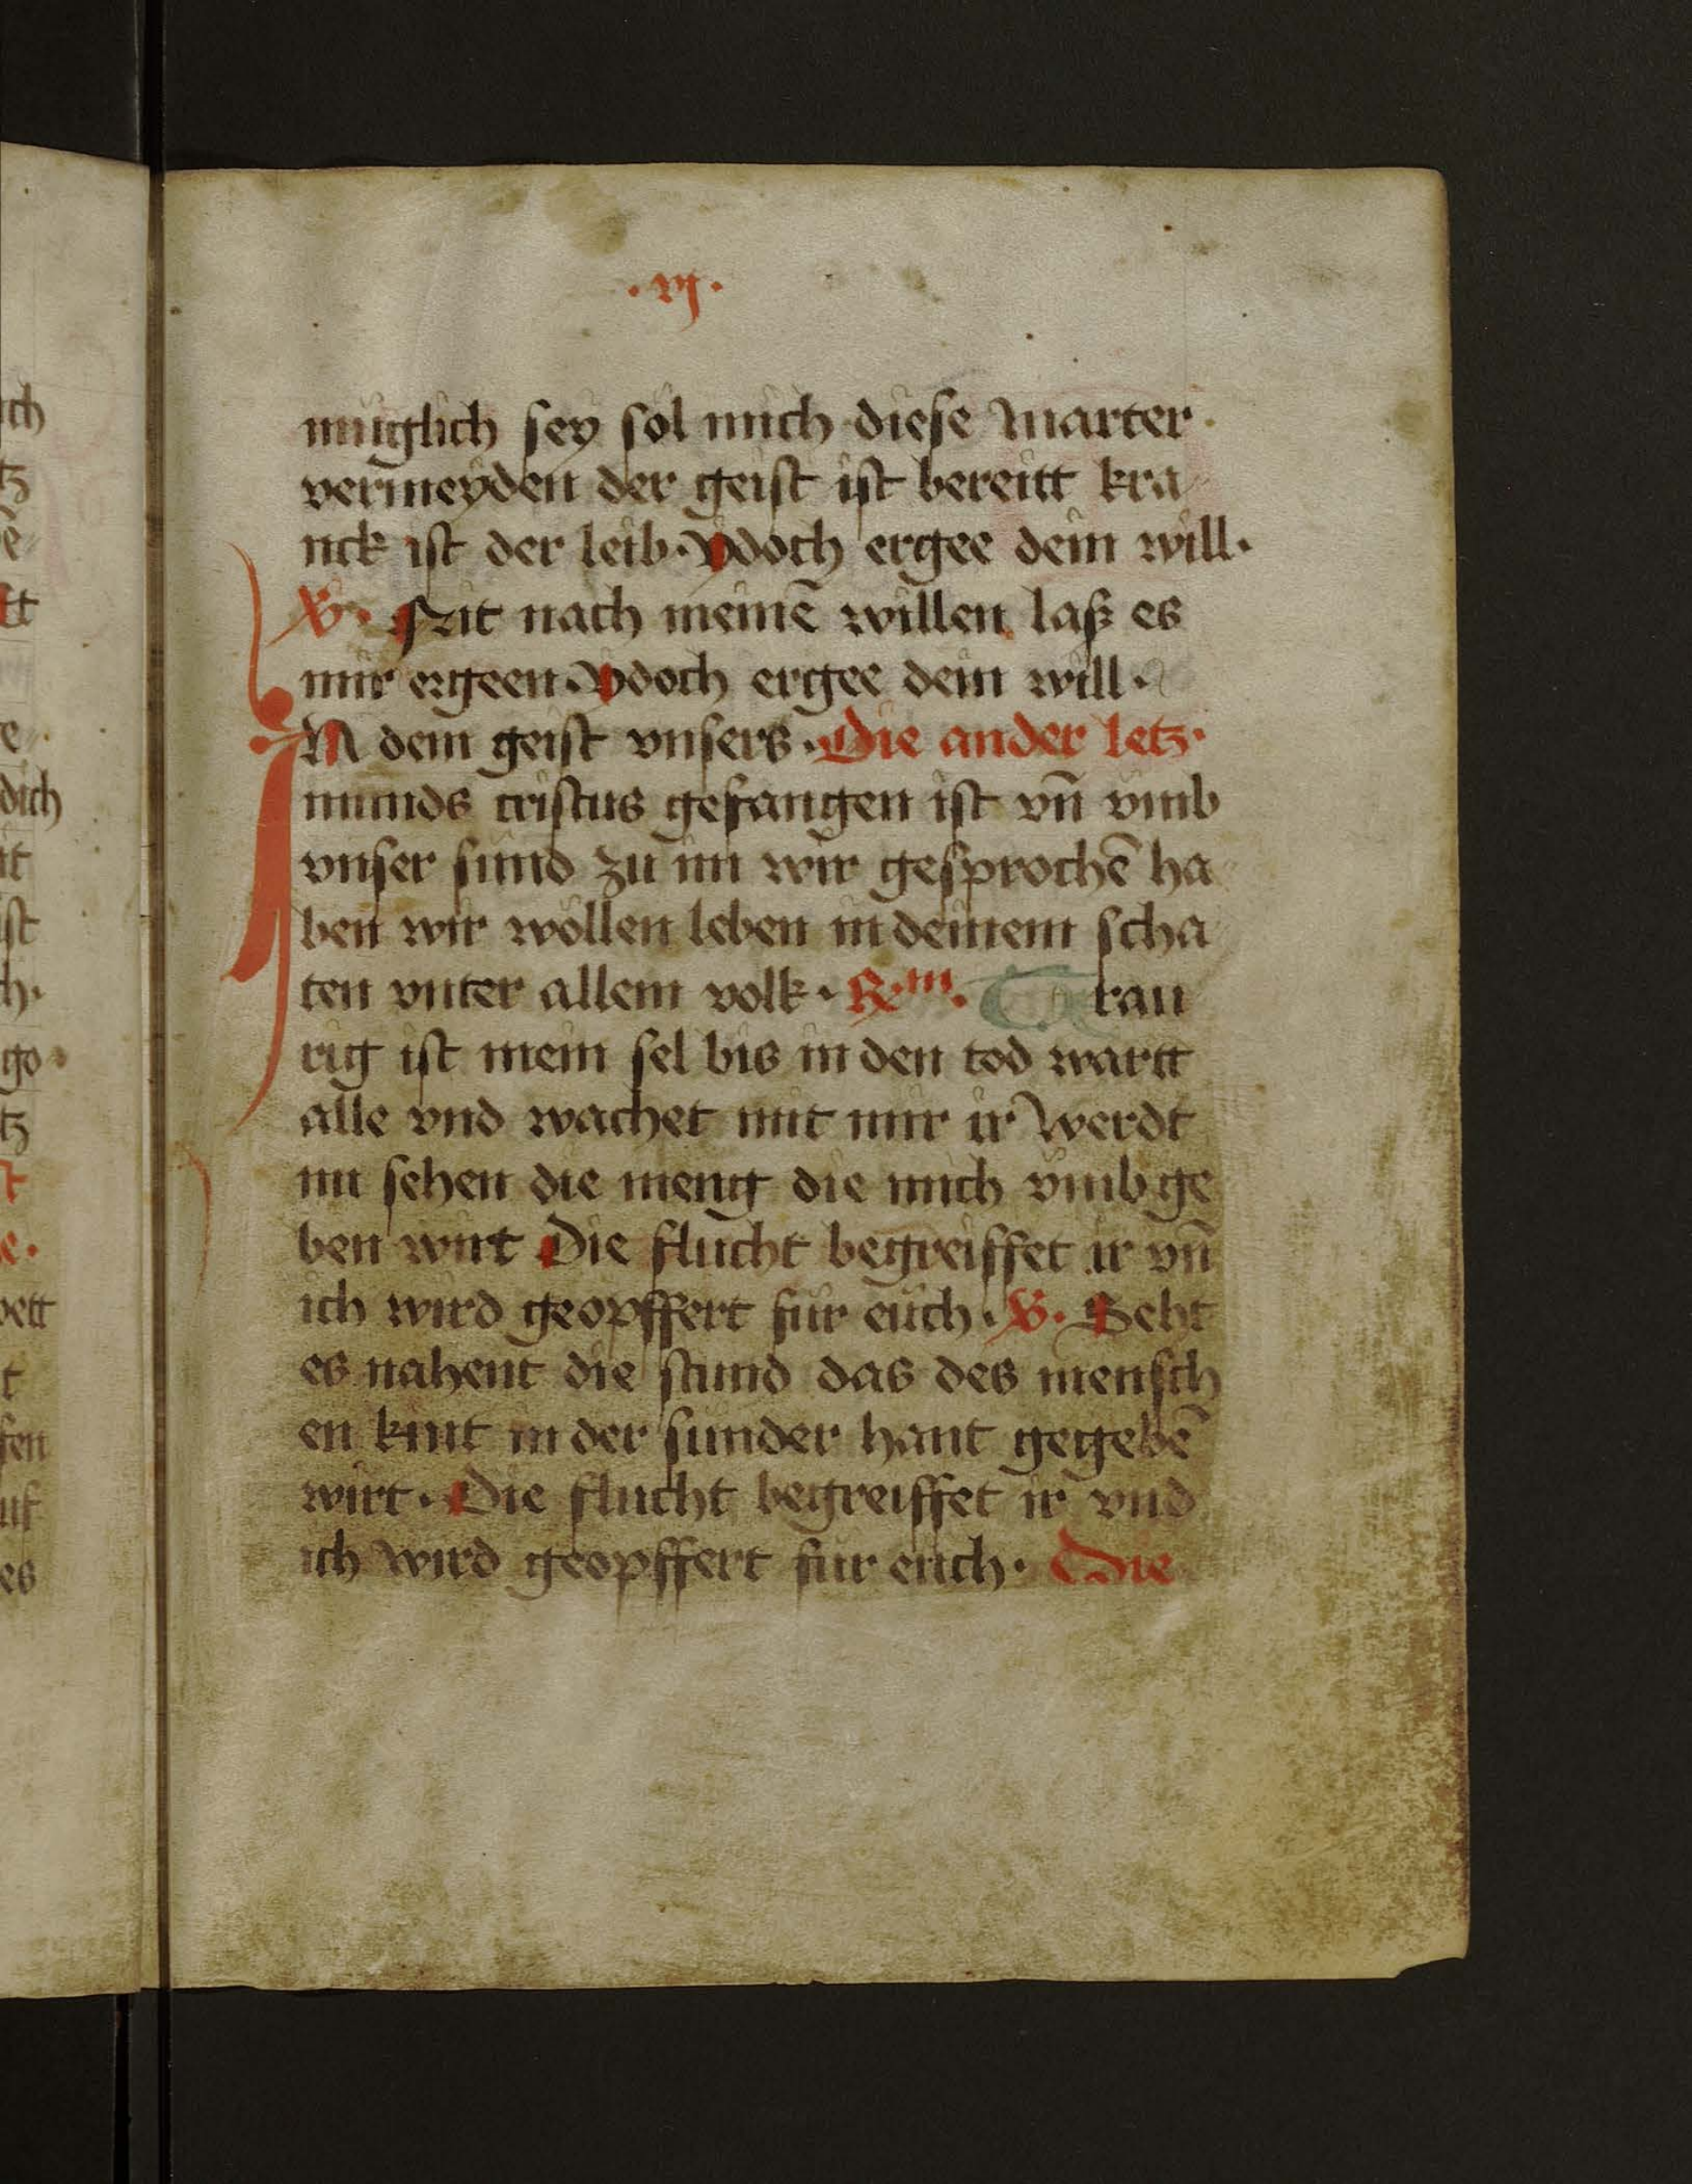 ·vj·
müglich sey sol mich diese marter
vermeyden der geist ist bereitt kra
nck ist der leib· ydoch ergee dein will·
V· Nit nach meinē willen laß es
mir ergeen· ydoch ergee dein will·
IN dem geist vnsers· Die ander letz·
munds cristus gefangen ist vn̄ vmb
vnser sund zu im wir gesprochē ha
ben wir wöllen leben in deinem scha
ten vnter allem volk· R·m· Trau
rig ist mein sel bis in den tod wartt
alle vnd wachet mit mir ir werdt
nu sehen die meng die mich vmb ge
ben wirt Die flucht begreiffet ir vn̄
ich wird geopffert für euch· V· Seht
es nahent die stund das des mensch
en kint in der sunder hant gegebē
wirt· Die flucht begreiffet ir vnd
ich wird geopffert für euch· Die